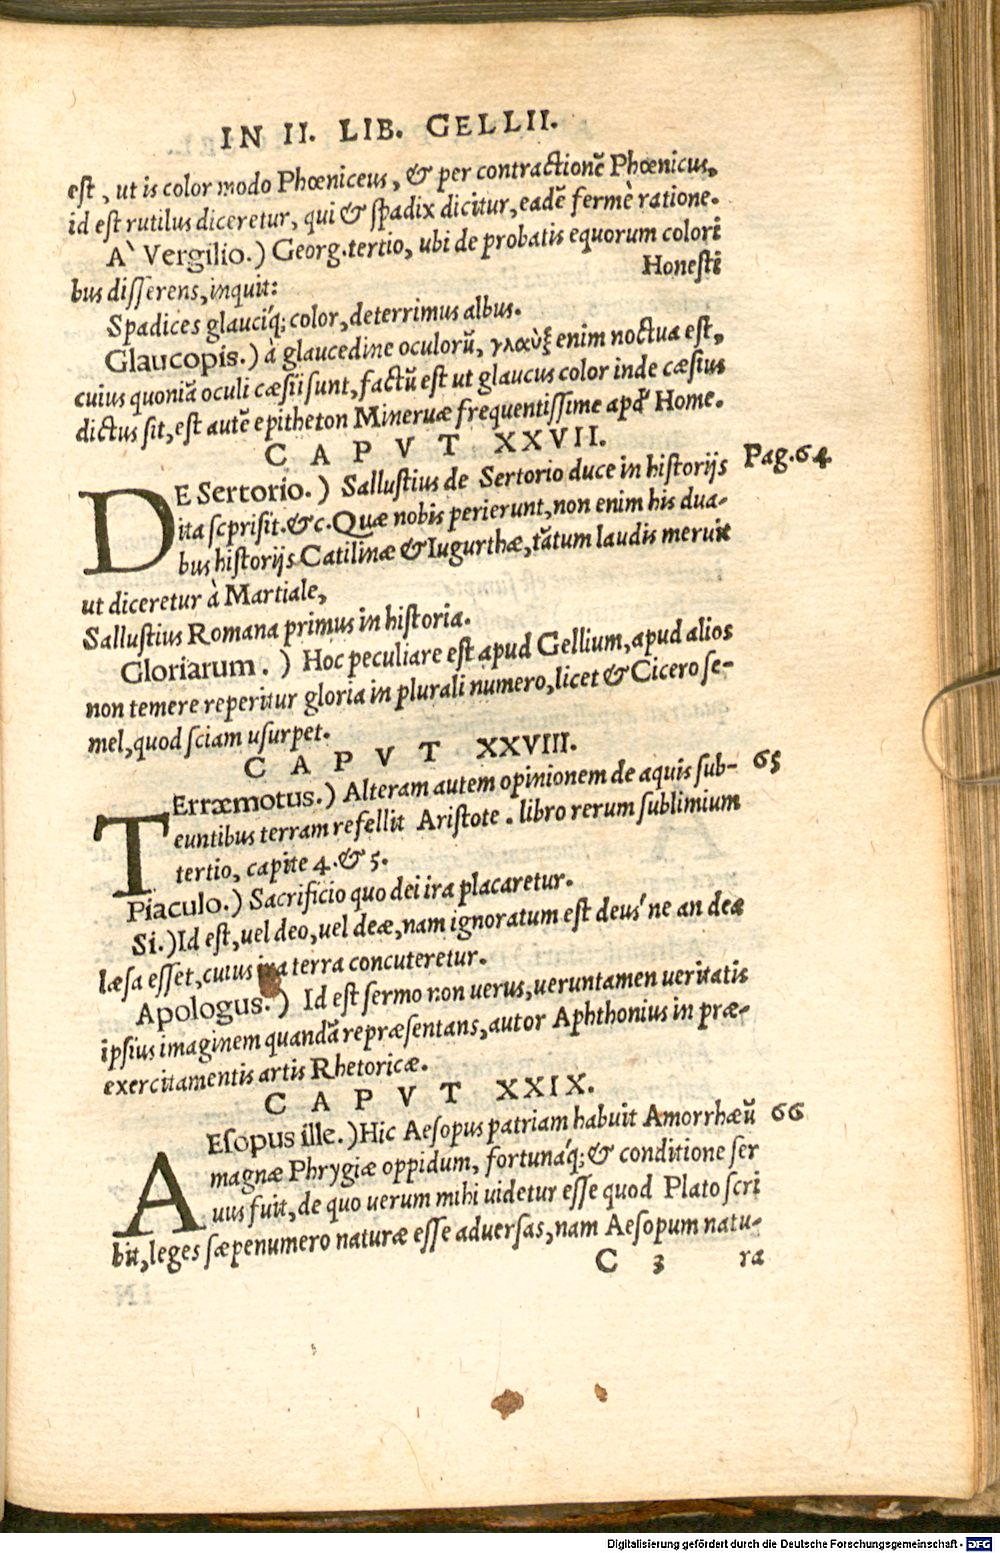 IN II. LIB. GELLII.
est, ut is color modo Phœniceus, & per contractionẽ Phœnicus,
id est rutilus diceretur, qui & spadix dicitur, eadẽ fermè ratione.
A` Vergilio.) Georg.tertio, ubi de probatis equorum colori
bus disserens, inquit:
Honesti
Spadices glauciq́; color, deterrimus albus.
Glaucopis.) à glaucedine oculorũ, γλαὺξ enim noctua est,
cuius quoniã oculi cæsii sunt, factũ est ut glaucus color inde cæsius
dictus sit, est autẽ epitheton Mineruæ frequentissime apd' Home.
CAPVT XXVII.
DE Sertorio.) Sallustius de Sertorio duce in historijs Pag.64
ita scprisit.&c. Quæ nobis perierunt, non enim his dua-
bus historijs Catilinæ & Iugurthæ, tãtum laudis meruit
ut diceretur à Martiale,
Sallustius Romana primus in historia.
Gloriarum.) Hoc peculiare est apud Gellium, apud alios
non temere reperitur gloria in plurali numero, licet & Cicero se-
mel, quod sciam usurpet.
CAPVT XXVIII.
TErræmotus.) Alteram autem opinionem de aquis sub- 65
euntibus terram refellit Aristote. libro rerum sublimium
tertio, capite 4.& 5.
Piaculo.) Sacrificio quo dei ira placaretur.
Si.) Id est, uel deo, uel deæ, nam ignoratum est deus'ne an dea
læsa esset, cuius ira terra concuteretur.
Apologus.) Id est sermo non uerus, ueruntamen ueritatis
ipsius imaginem quandã repræsentans, autor Aphthonius in præ-
exercitamentis artis Rhetoricæ.
CAPVT XXIX.
AEsopus ille.) Hic Aesopus patriam habuit Amorrhæũ 66
magnæ Phrygiæ oppidum, fortunáq; & conditione ser
uus fuit, de quo uerum mihi uidetur esse quod Plato scri
bit, leges sæpenumero naturæ esse aduersas, nam Aesopum natu-
C 3 ra
Digitalisierung gefördert durch die Deutsche Forschungsgemeinschaft - DFG